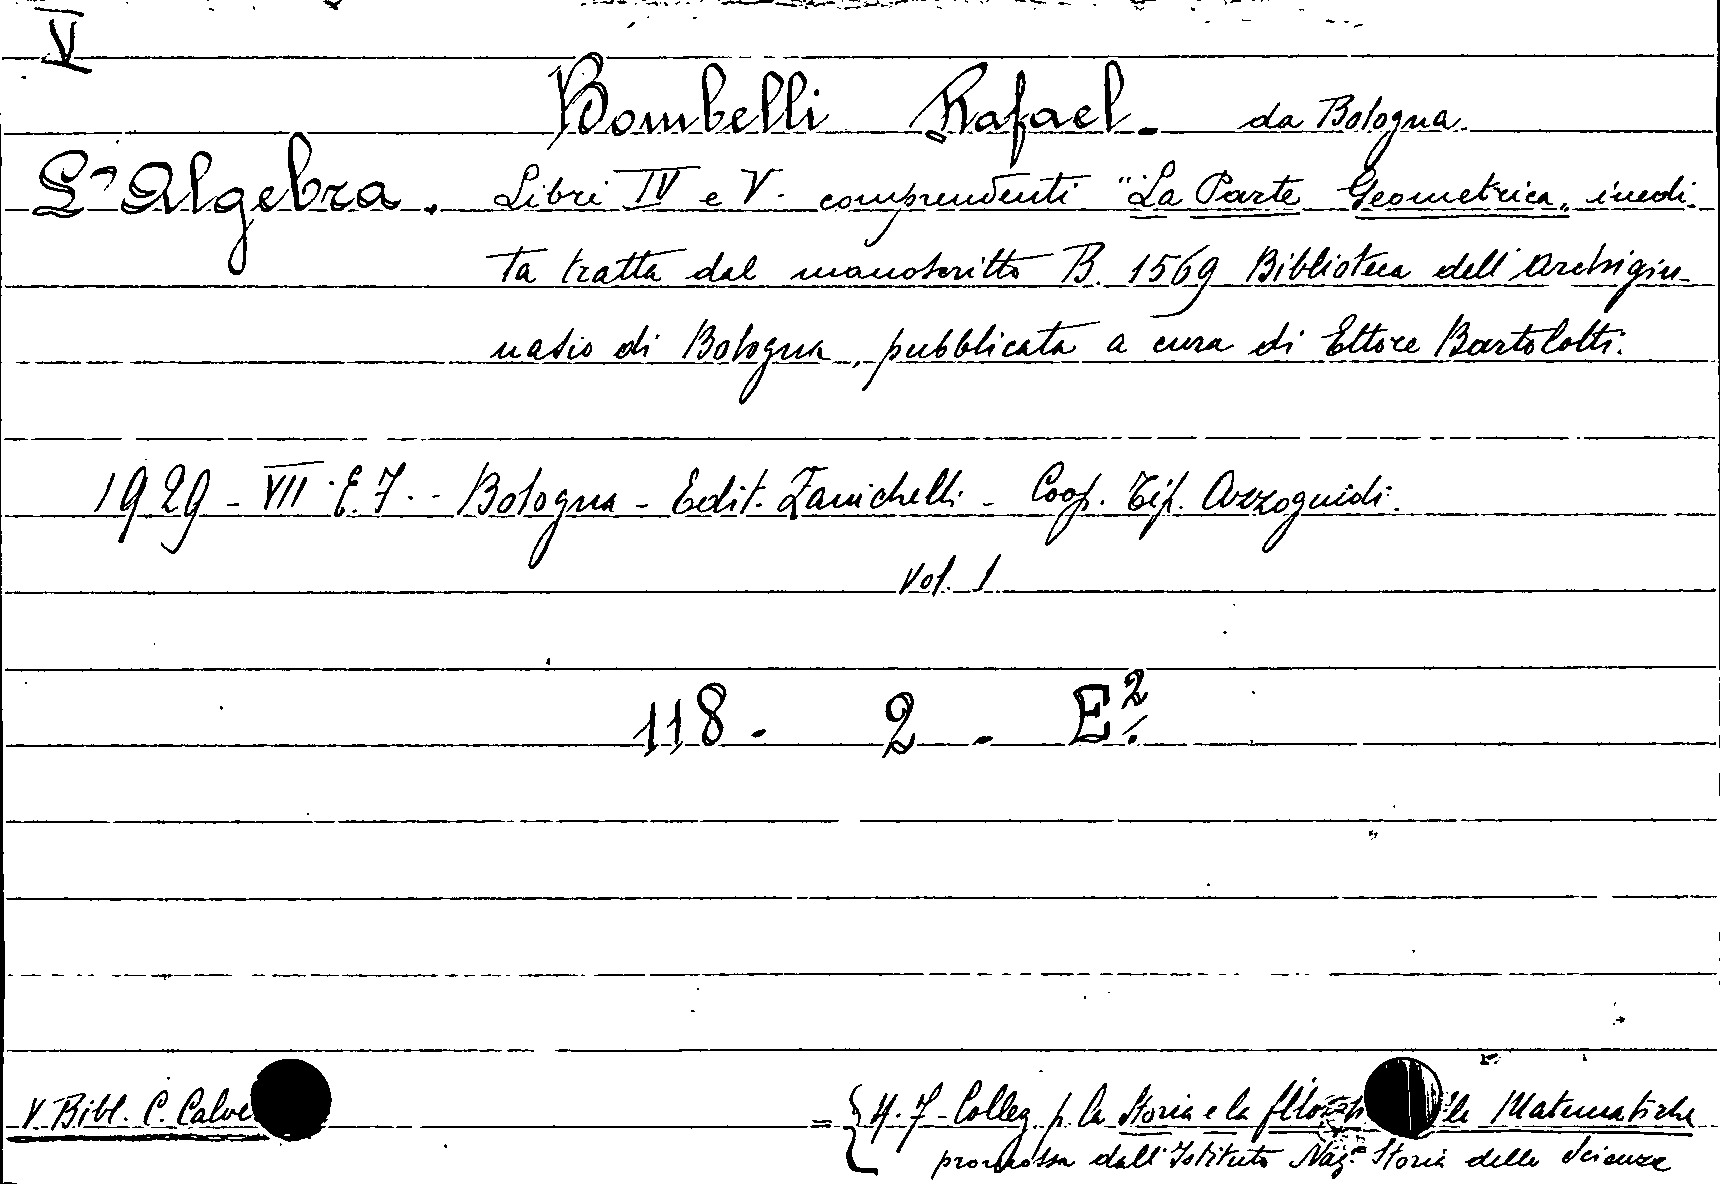 V
Bombelli Rafael. da Bologna.
L'Algebra. Libri IV e V. comprendenti "La Parte Geometrica„ inedi-
ta tratta dal manoscritto B. 1569 Biblioteca dell'Archigin-
nasio di Bologna, pubblicata a cura di Ettore Bortolotti.
1929 - VII. E. F. - Bologna - Edit. Zanichelli - Coop. Tip. Azzoguidi.
Vol. 1
118. 2. E².
V. Bibl. C. Calve
= Collez. p. la Storia e la filosof le Matematiche
promossa dall'Istituto Naz. Storia delle Scienze